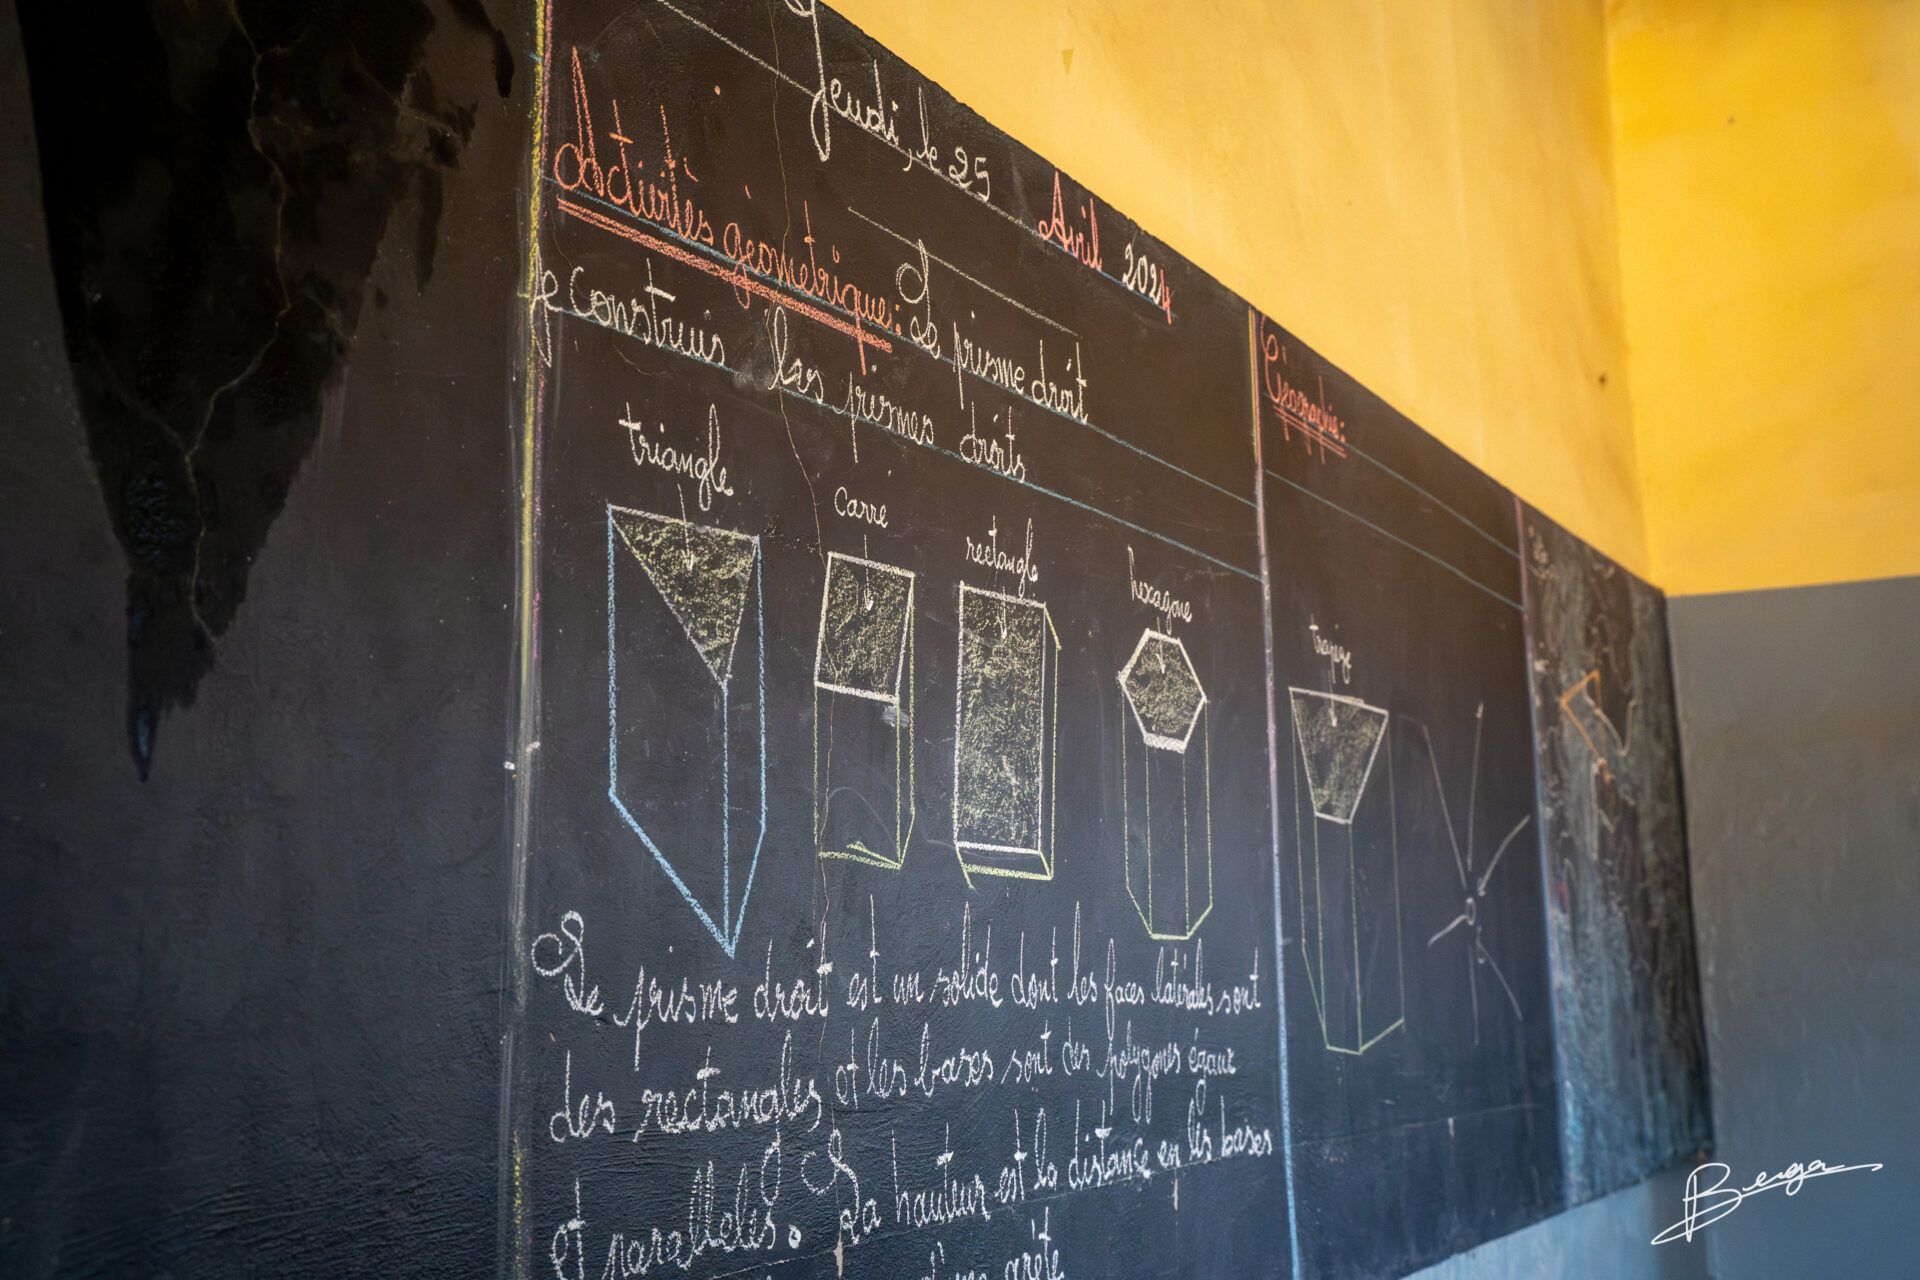 Jeudi, le 25 Avril 2024
Activités géometrique: Le prisme droit
Je construis les prismes droits
triangle
carré
rectangle
hexagone
trapèze
Le prisme droit est un solide dont les faces latérales sont
des rectangles et les bases sont des polygones égaux
et parallèles. La hauteur est la distance en les bases
d'une arête
Géographie:
Berger